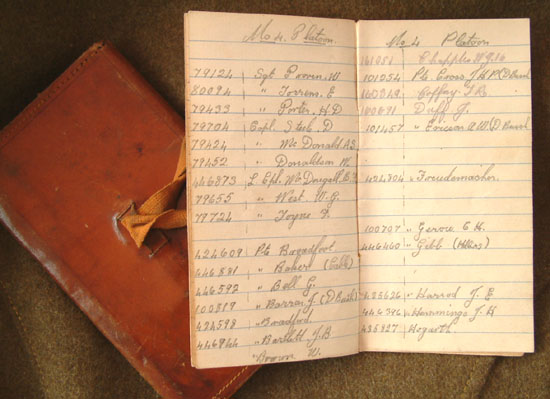 No 4. Platoon.
79124 Sgt Poven. W.
80094 " Torrens. E
79433 " Porter. H.D
79704 Corpl. Steib. D
79424 " Mc Donald A.S.
79152 " Donaldson W.
446873 L Cpl. McDougall
79655 " West W.G.
79724 " Joyne
424609 Pte Broadfoot
446831 " Bakers
446592 " Bell G.
100819 " Barran J (D Batt)
424598 " Bradford.
446944 " Bartlett J.B
Brown W.
No 4 Platoon
161051 Chapples W.J.
101054 Pte Cross J.H.R (D Band)
160819 Coffey
Duff J.
101457 " Ericson A.W. (D Band)
424304 " Freudemacher.
100707 " Gerow E.H.
446460 " Gibb
435626 " Harrod J.E
446396 " Hammings J.H
435827 Hogarth